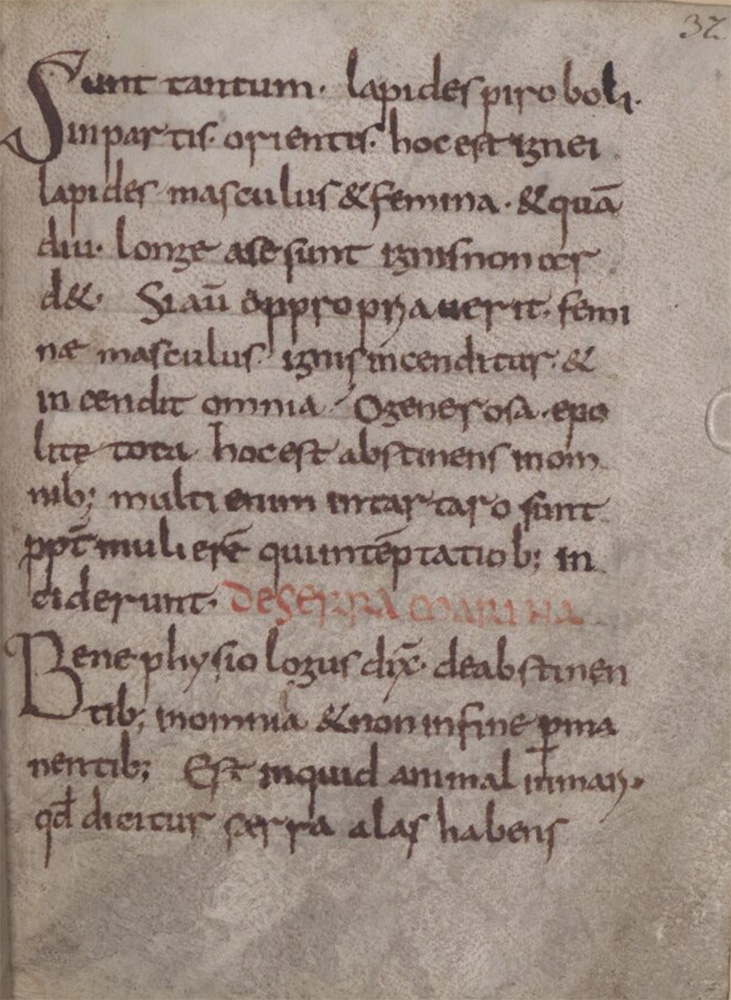 37
Sunt tantum· lapides piroboli·
inpartis· orientis· hoc est ignei
lapides masculus & femina· & quā
diu· longe ase sunt ignis non acs
d&· Si aū appropryauerit· femi
næ masculus· ignis incenditur· &
incendit omnia· O generosa· epo
lite tota hoc est abstinens inom
nib; multi enim intartaro sunt
ppt̄ mulierē qui intēptatiob; in
ciderunt· DE SERRA MARINA
Bene physiologus dix̄· de abstinen
tib; inomnia & non infine pma
nentib; Est inquid animal inmary·
qd̄ dicitur serra alas habens